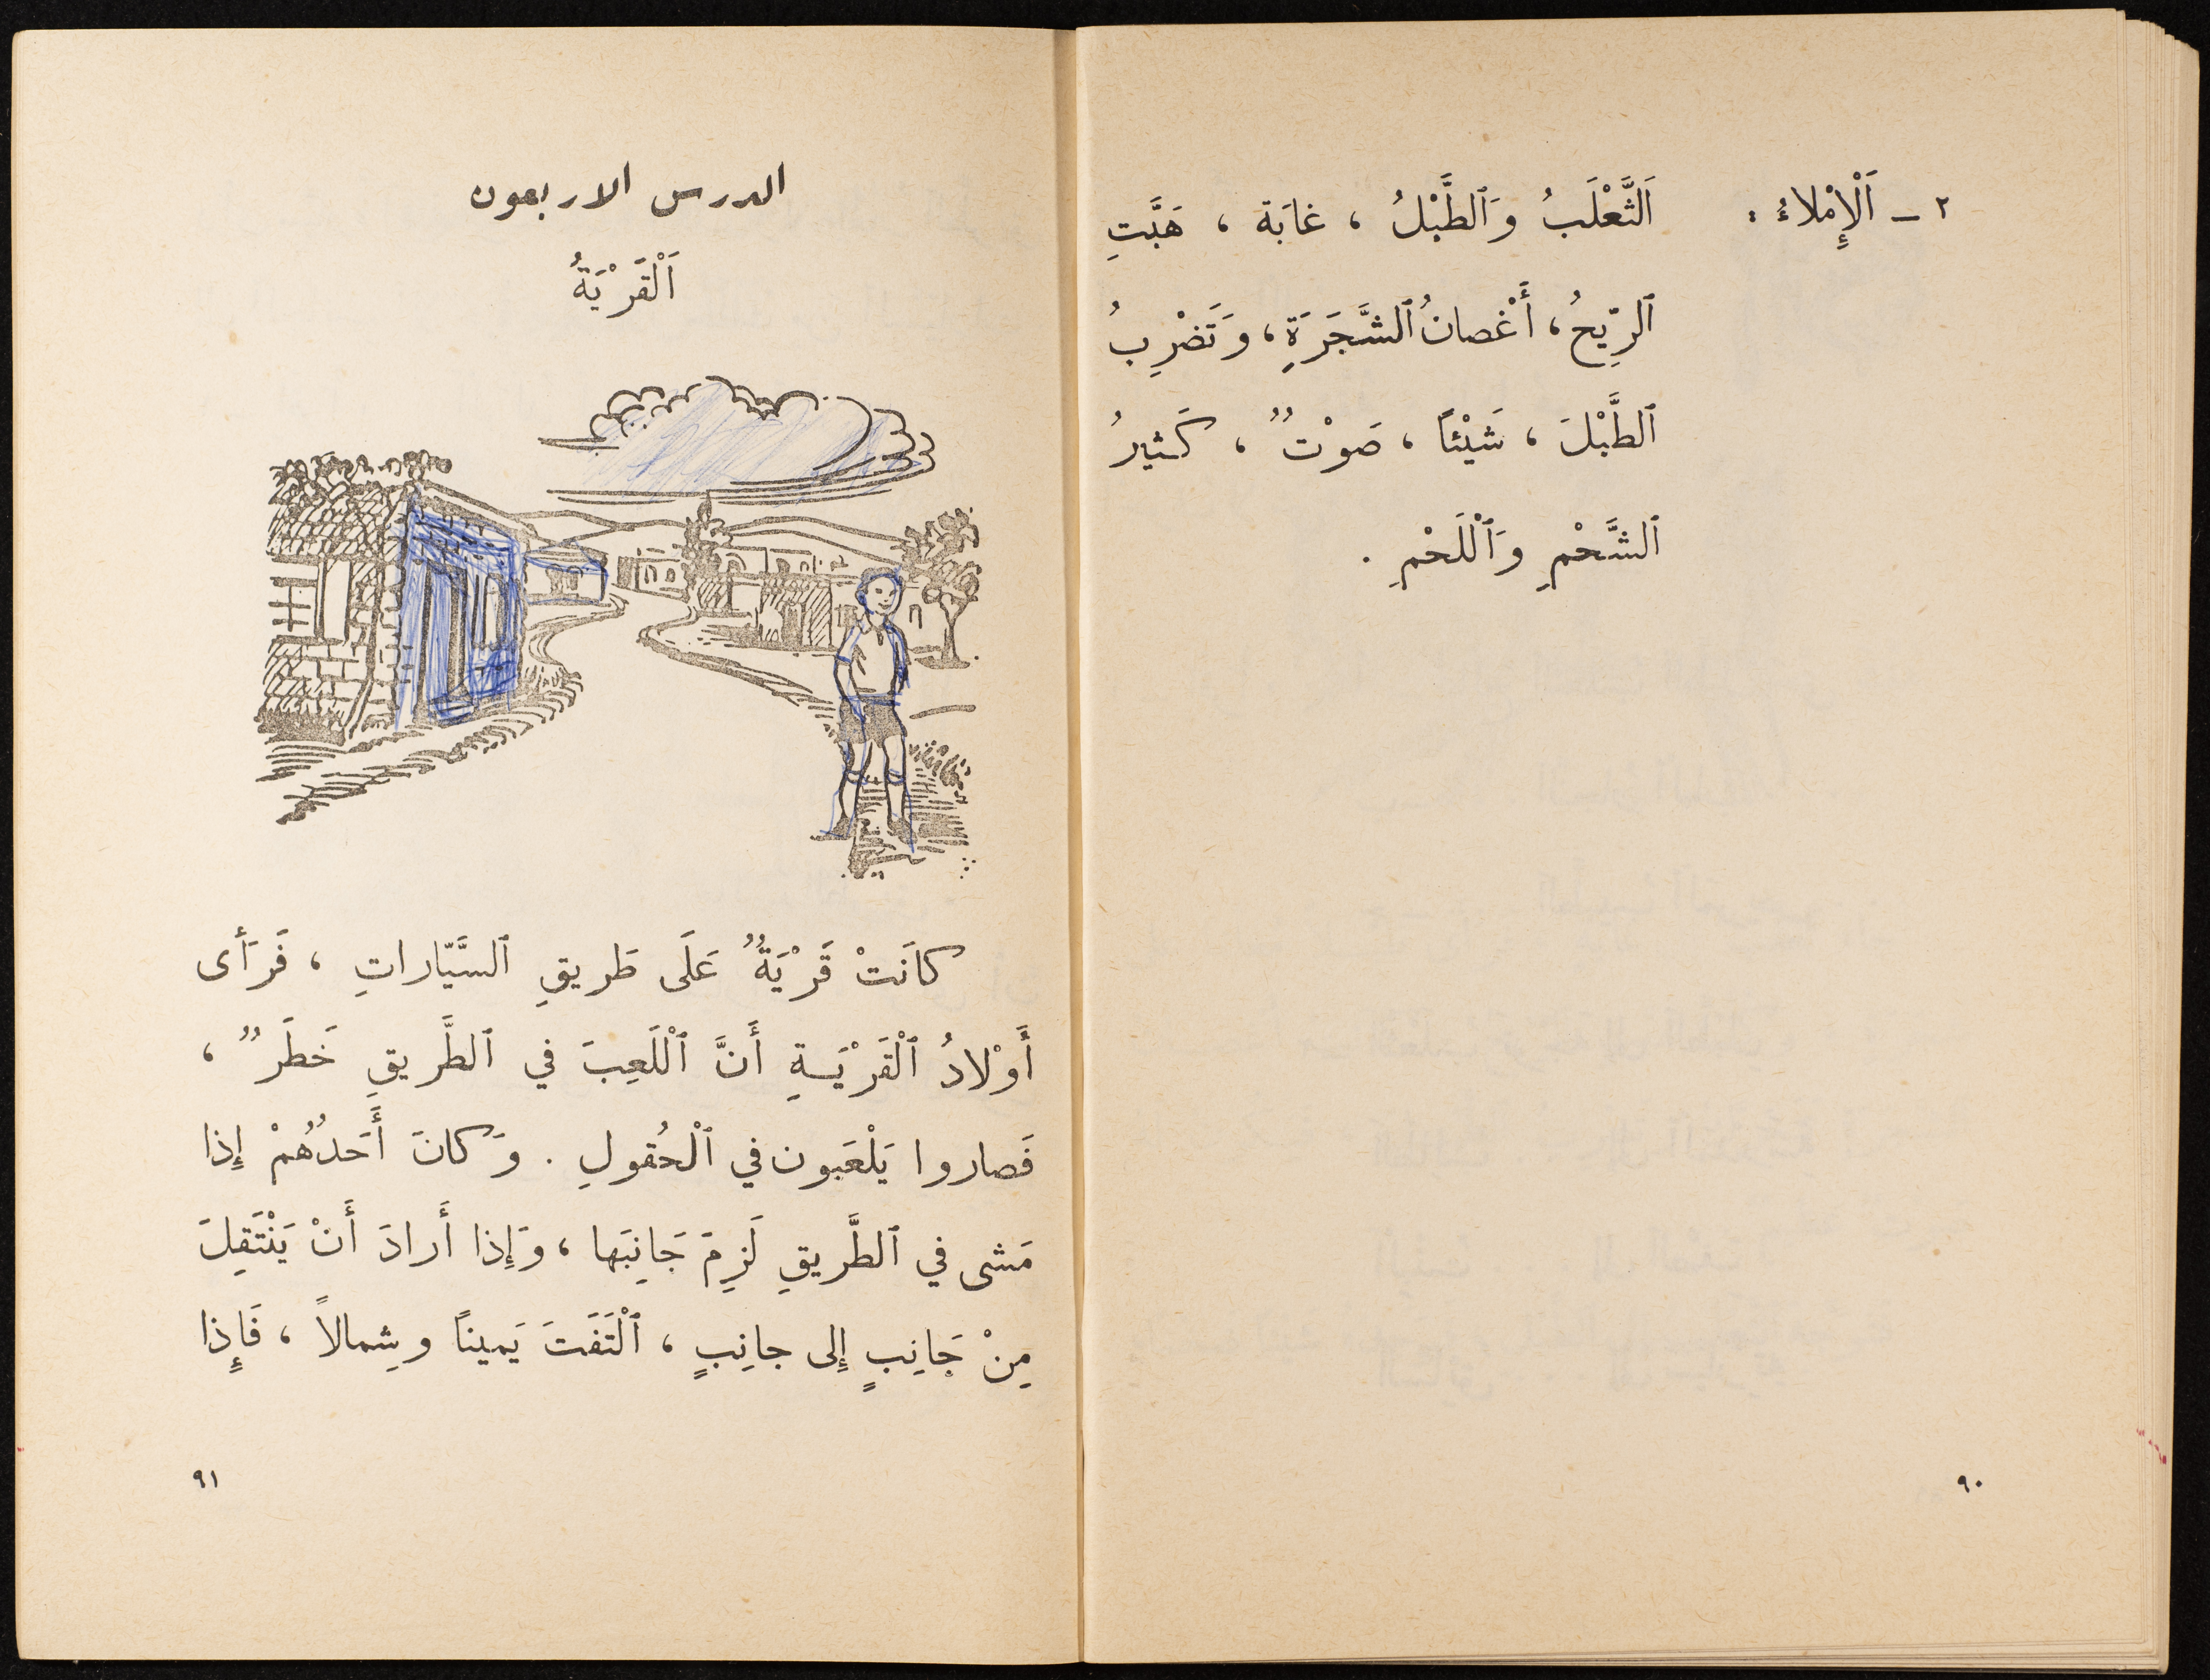 ٢ - اَلْإِمْلاءُ : اَلثَّعْلَبُ وَٱلطَّبْلُ ، غابَة ، هَبَّتِ
ٱلرِّيحُ ، أَغْصانُ ٱلشَّجَرَةِ ، وَتَضْرِبُ
ٱلطَّبْلَ ، شَيْئاً ، صَوْتٌ ، كَثيرُ
ٱلشَّحْمِ وَٱلْلَحْمِ .
٩٠
الدرس الاربعون
اَلْقَرْيَةُ
كانَتْ قَرْيَةٌ عَلَى طَريقِ ٱلسَّيّاراتِ ، فَرَأى
أَوْلادُ ٱلْقَرْيَةِ أَنَّ ٱلْلَعِبَ في ٱلطَّريقِ خَطَرٌ ،
فَصاروا يَلْعَبون في ٱلْحُقولِ . وَكانَ أَحَدُهُمْ إِذا
مَشى في ٱلطَّريقِ لَزِمَ جَانِبَها ، وَإِذا أَرادَ أَنْ يَنْتَقِلَ
مِنْ جَانِبٍ إِلى جانِبٍ ، ٱلْتَفَتَ يَميناً وشِمالاً ، فَإِذا
٩١